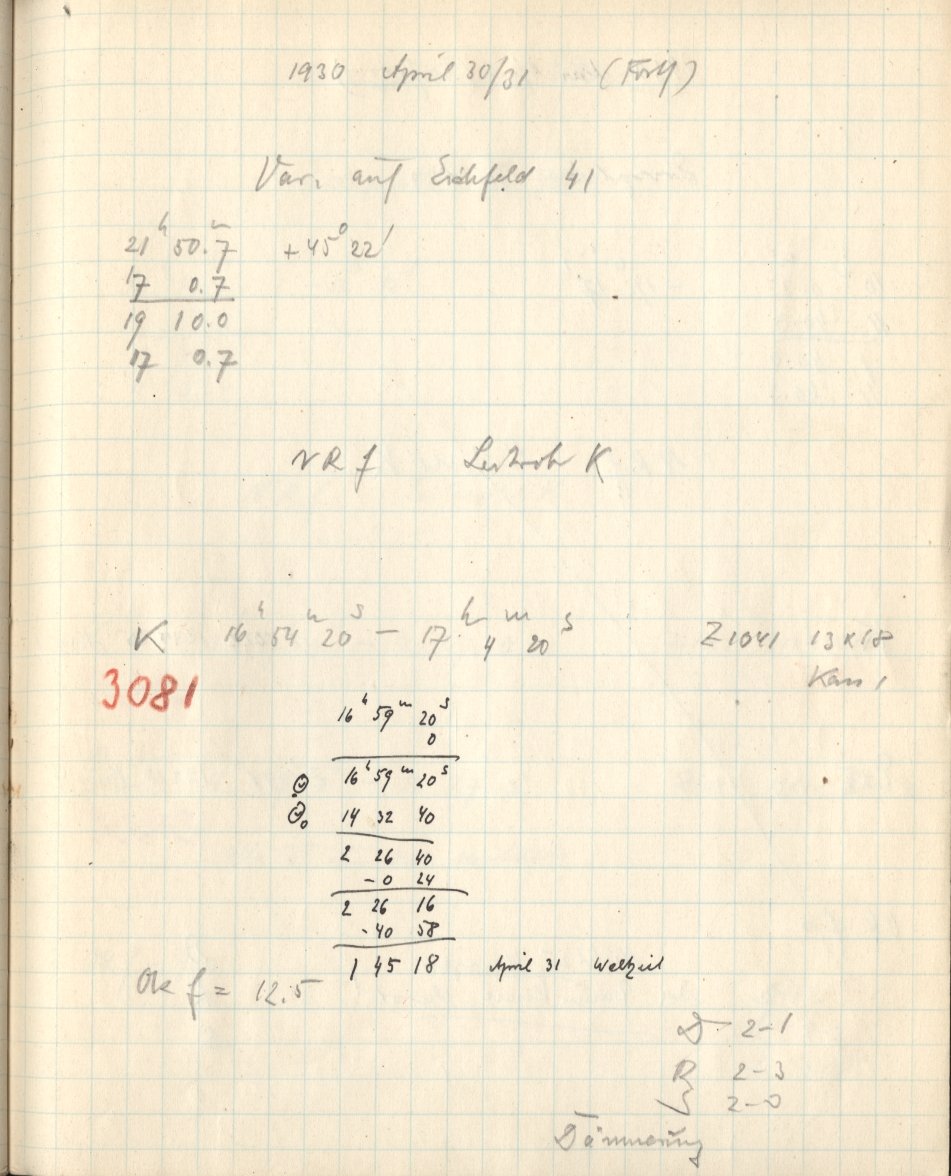 1930 April 30/31 (Forts)
Var. auf Eichfeld 41
21ʰ 50.7ᵐ +45° 22'
17 0.7
19 10.0
17 0.7
VRf Leitrohr K
K 16ʰ 54ᵐ 20ˢ — 17ʰ 4ᵐ 20ˢ Z1041 13x18
Kass 1
3081
16ʰ 59ᵐ 20ˢ
0
16ʰ 59ᵐ 20ˢ
14 32 40
2 26 40
-0 24
2 26 16
-40 58
1 45 18 April 31 Weltzeit
Ok f = 12.5
D 2-1
R 2-3
2-0
Dämmerung